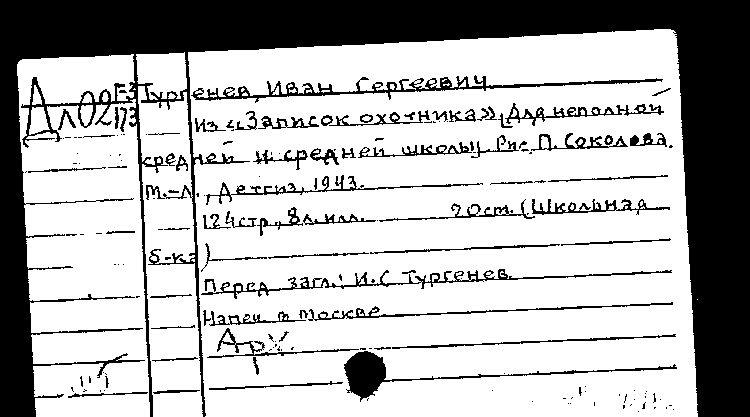 Ал02 Г-3/173 Тургенев, Иван Сергеевич
Из «Записок охотника» [Для неполной
средней и средней школы. Рис. П. Соколова.
М.-Л., Детгиз, 1943.
124 стр., 8 л. илл. 20 см. (Школьная
б-ка)
Перед загл.: И.С. Тургенев.
Напеч. в Москве
Арх.